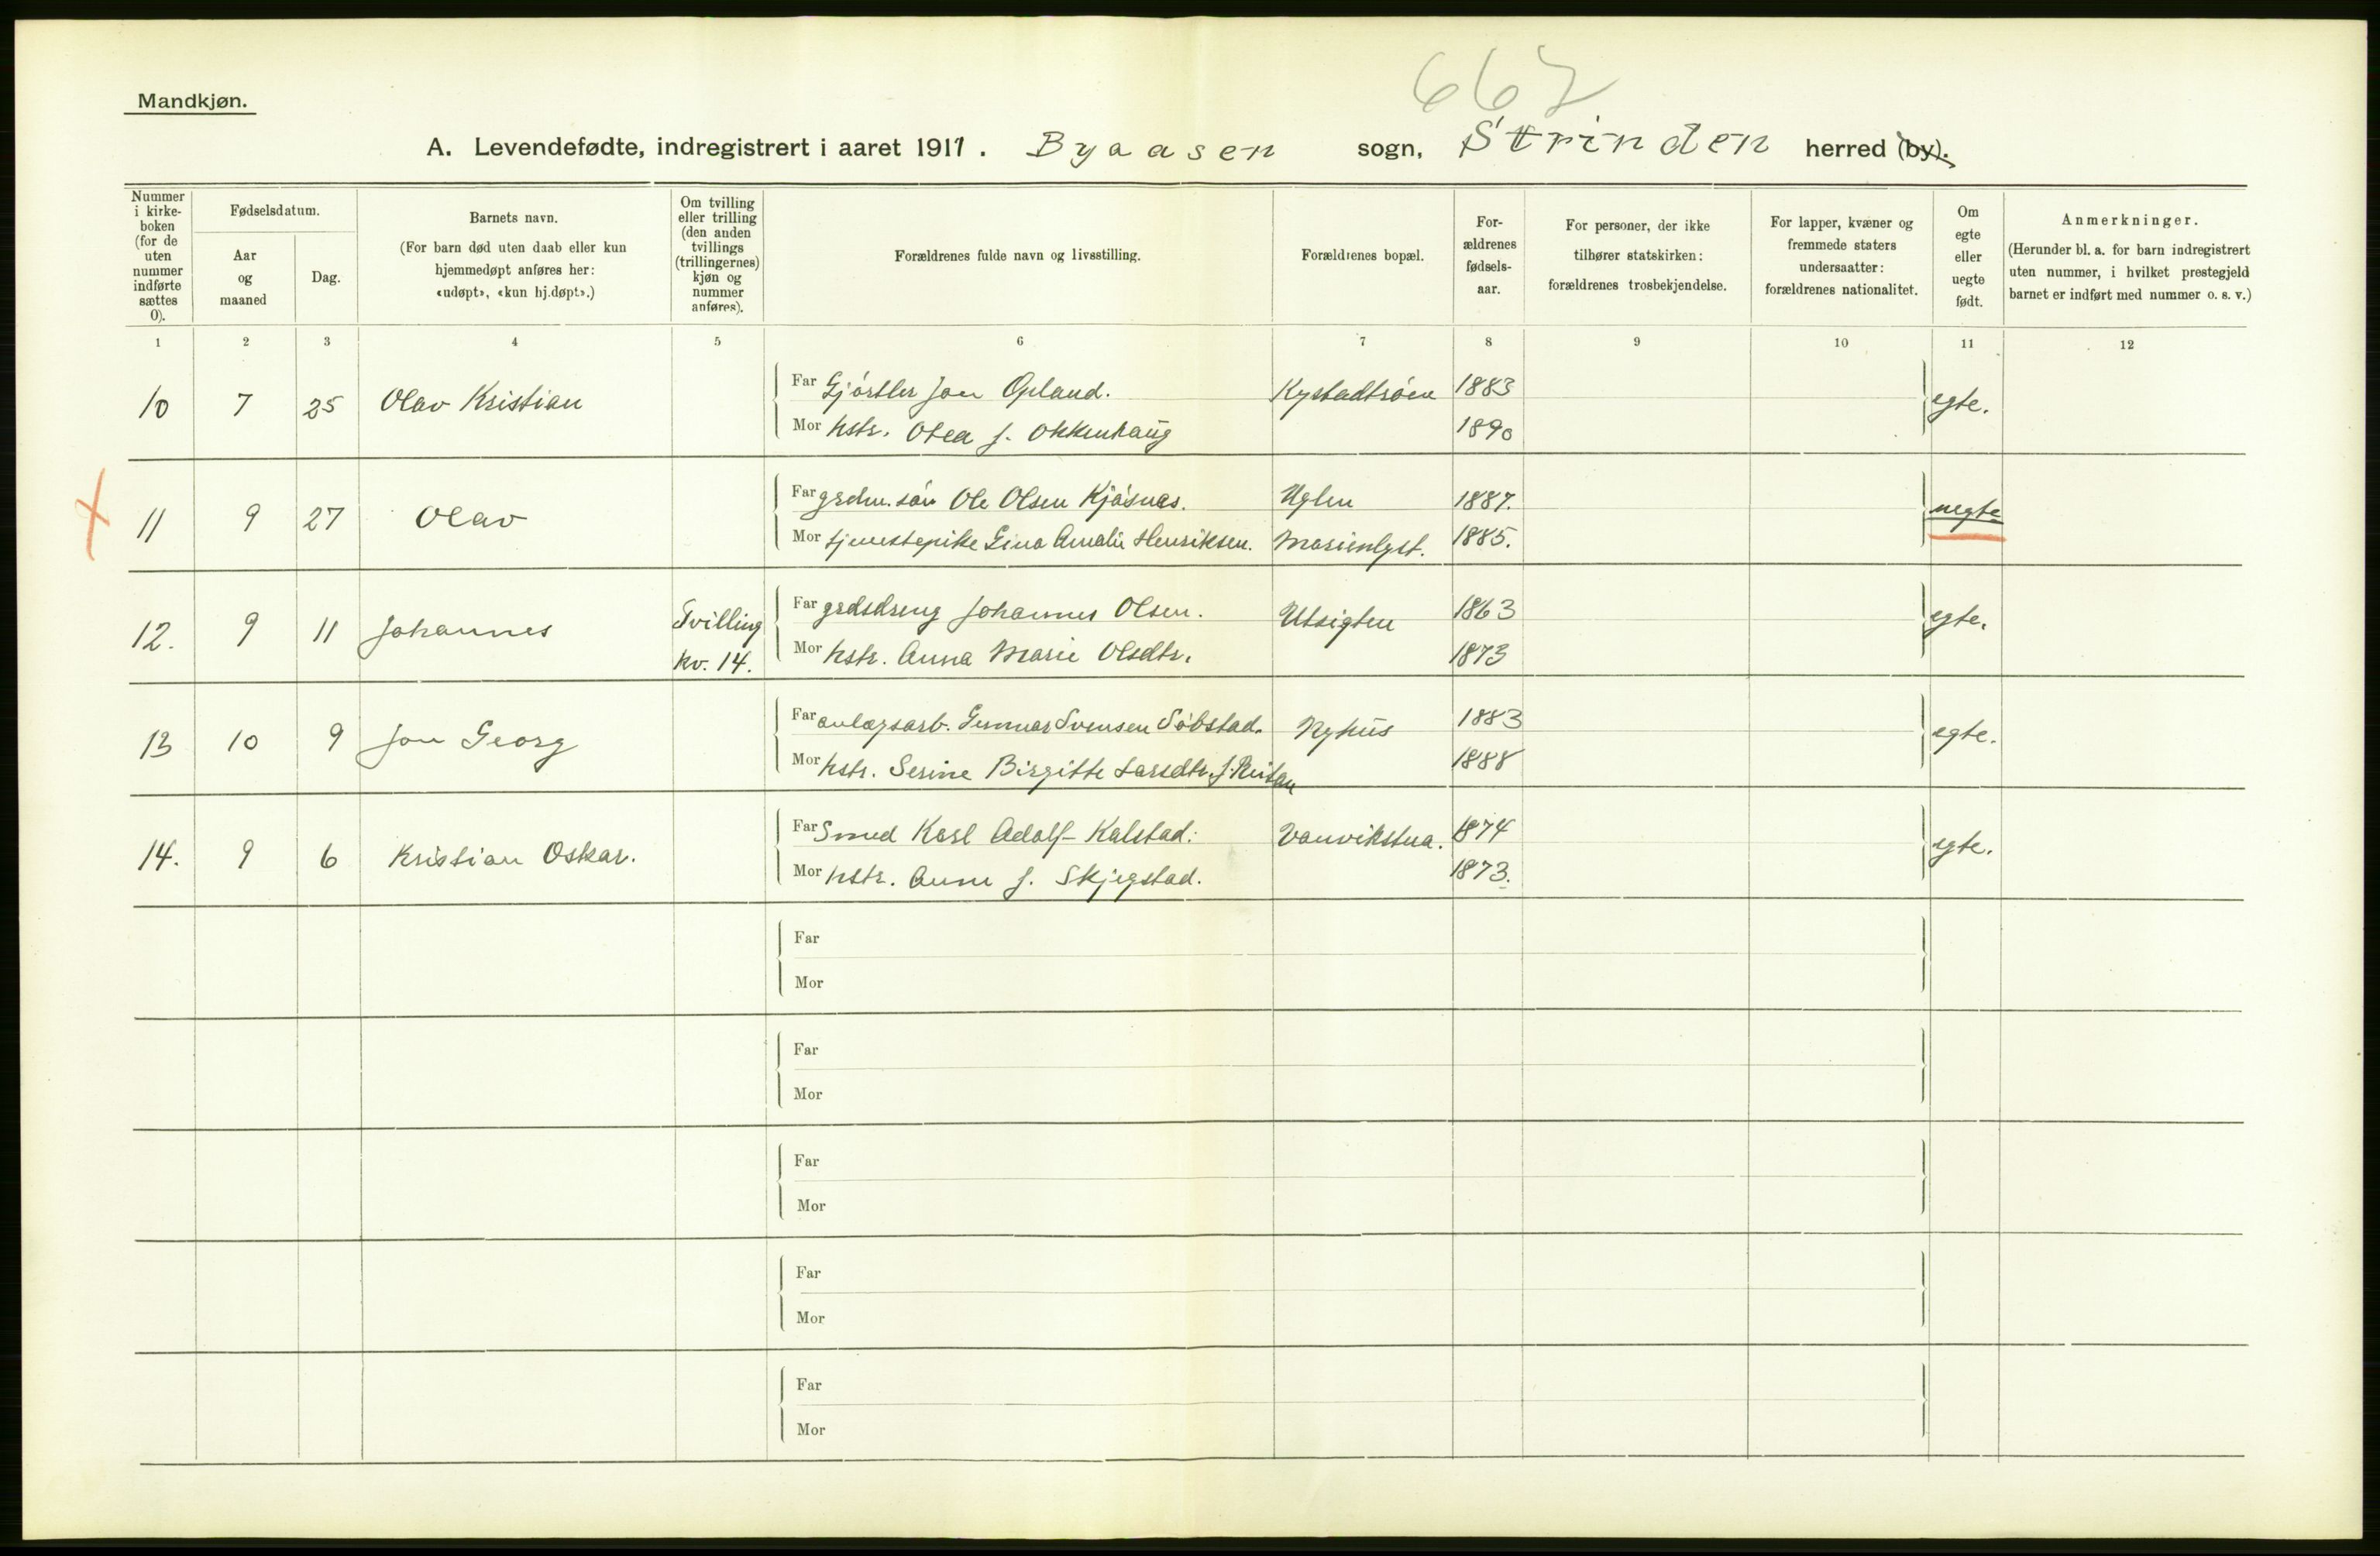 667
Mandkjøn.
A. Levendefødte, indregistrert i aaret 1911. Byaasen sogn, Strinden herred (by).
Nummer i kirke-boken (for de uten nummer indførte sættes 0).
Fødselsdatum.
Aar og maaned
Dag.
Barnets navn.
(For barn død uten daab eller kun hjemmedøpt anføres her: «udøpt», «kun hj.døpt».)
Om tvilling eller trilling (den anden tvillings (trillingernes) kjøn og nummer anføres).
Forældrenes fulde navn og livsstilling.
Forældrenes bopæl.
For-ældrenes fødsels-aar.
For personer, der ikke tilhører statskirken: forældrenes trosbekjendelse.
For lapper, kvæner og fremmede staters undersaatter: forældrenes nationalitet.
Om egte eller uegte født.
Anmerkninger.
(Herunder bl. a. for barn indregistrert uten nummer, i hvilket prestegjeld barnet er indført med nummer o. s. v.)
1 2 3 4 5 6 7 8 9 10 11 12
10 7 25 Olav Kristian Far Gjörtler Jon Opland. Kystadtröen 1883 egte.
Mor hstr. Olea f. Okkenhaug 1890
11 9 27 Olav Far grdm. sön Ole Olsen Kjösnæs. Uglen 1887. uegte
Mor tjenestepike Gina Amalie Henriksen. Marienlyst. 1885.
12. 9 11 Johannes Tvilling kv. 14. Far grdsdreng Johannes Olsen. Utsigten 1863 egte.
Mor hstr. Anna Marie Olsdtr. 1873
13 10 9 Jon Georg Far anlægsarb. Gunnar Svensen Söbstad. Nyhus 1883 egte.
Mor hstr. Serine Birgitte Larsdtr. f. Reitan 1888
14. 9 6 Kristian Oskar. Far Smed Karl Adolf Kalstad. Vanvikstua. 1874 egte.
Mor hstr. Anne f. Skjegstad. 1873.
Far
Mor
Far
Mor
Far
Mor
Far
Mor
Far
Mor